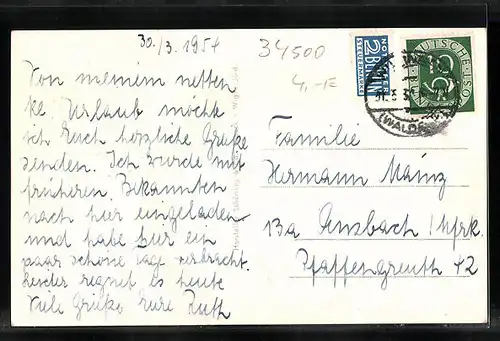 30./3.1954
34500
4,-E
Von meinem netten
ke. Urlaub möcht
ich Euch herzliche Grüße
senden. Ich wurde mit
früheren Bekannten
nach hier eingeladen
und habe hier ein
paar schöne Tage verbracht.
Leider regnet es heute
Viele Grüße Eure Ruth
NOTOPFER
2 BERLIN
STEUERMARKE
DEUTSCHE
Familie
Hermann Mainz
13a Ansbach / Mfrk.
Pfaffengreuth 42